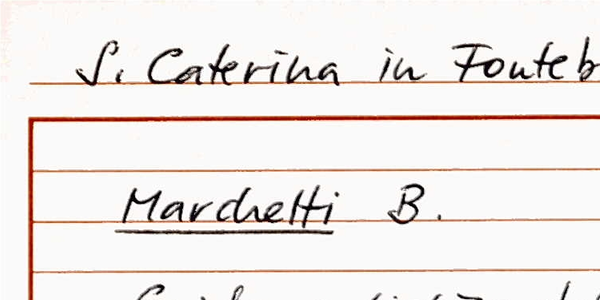 S. Caterina in Fonteb
Marchetti B.